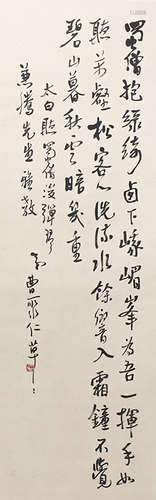 蜀僧抱綠綺西下峨嵋峯為吾一揮手如
聽萬壑松客心洗流水餘響入霜鐘不覺
碧山暮秋云暗幾重
太白聽蜀僧濬彈琴
先生雅教
曹聚仁草